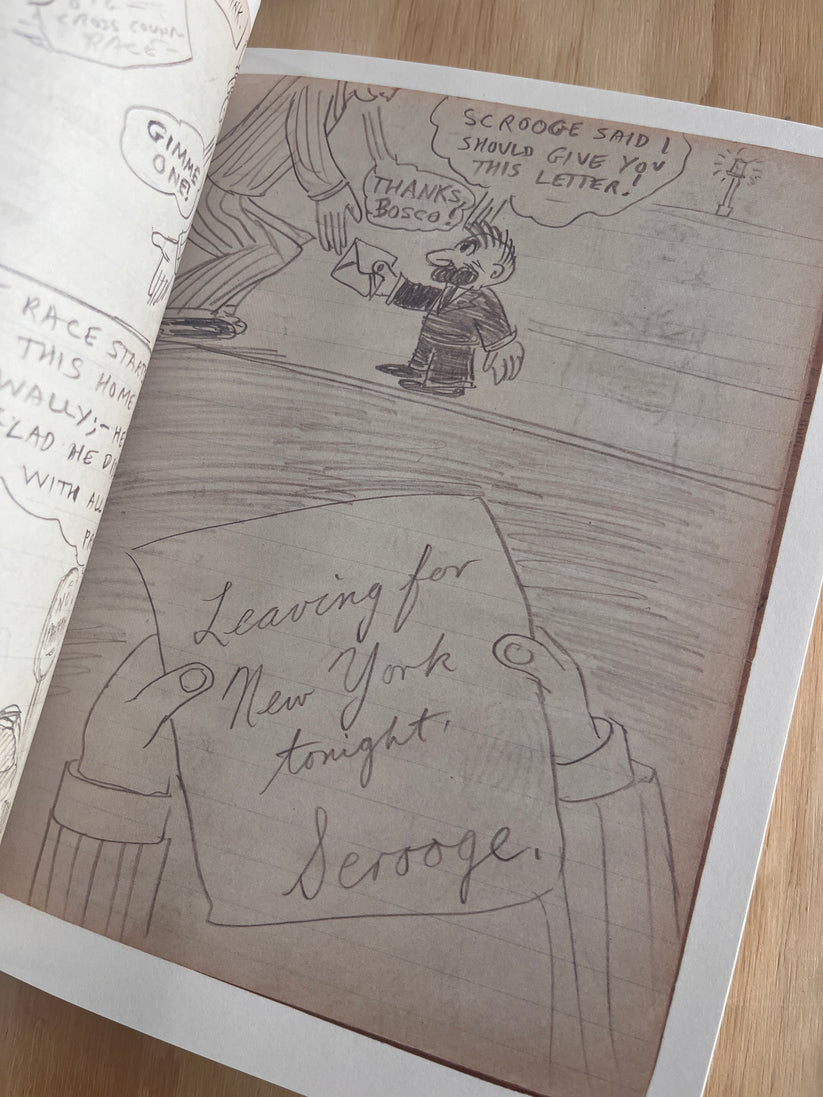 CROSS COUN
RACE
GIMME
ONE!
RACE START
THIS HOME
WALLY;- HE
GLAD HE D
WITH ALL
SCROOGE SAID I
SHOULD GIVE YOU
THIS LETTER!
THANKS,
BOSCO!
Leaving for
New York
tonight.
Scrooge.